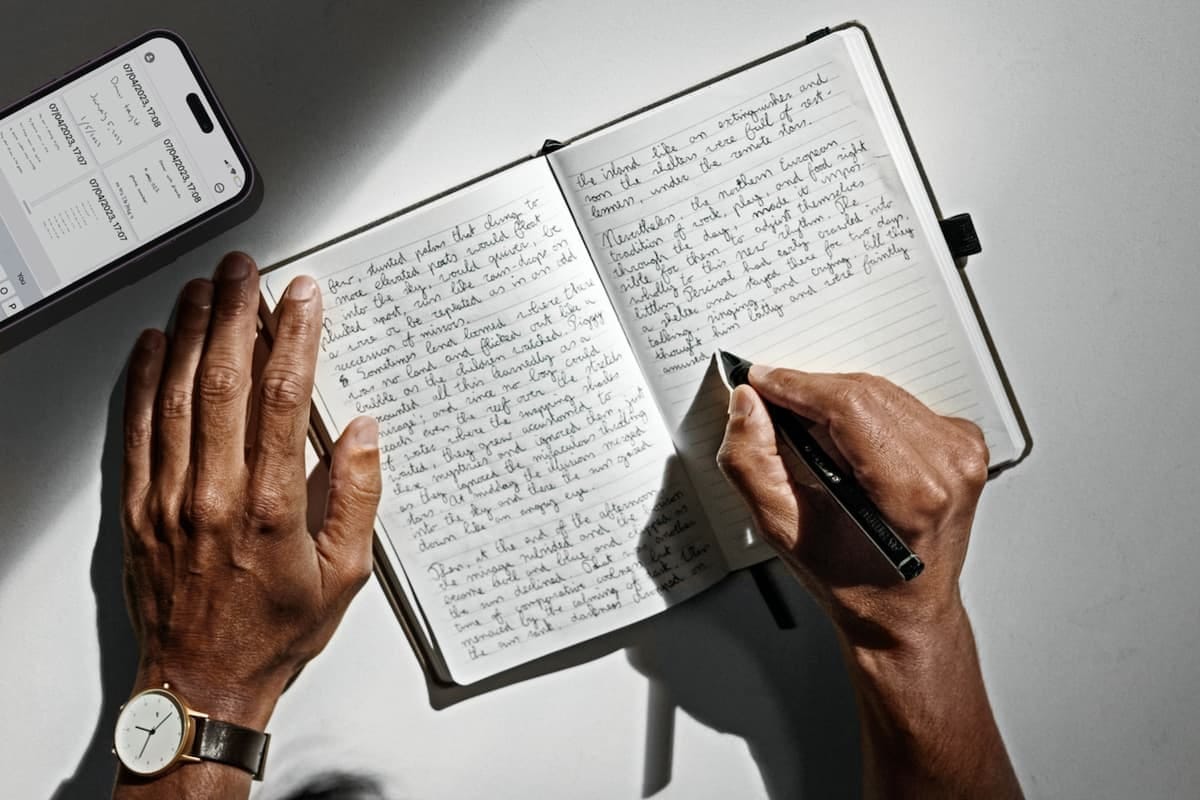 07/04/2023, 17:08
07/04/2023, 17:08
07/04/2023, 17:07
07/04/2023, 17:07
You
O
P
few, stunted palms that clung to
more elevated parts would float
into the sky, would quiver, be
plucked apart, run like rain-drops on
a wire or be repeated as in an odd
succession of mirrors.
Sometimes land loomed where there
was no land and flicked out like a
bubble as the children watched. Piggy
counted all this learnedly as a
mirage"; and since no boy could
reach even the reef over the stretch
of water where the snapping sharks
waited, they grew accustomed to
these mysteries and ignored them, just
as they ignored the miraculous throbbing
stars. At midday the illusions merged
into the sky and there the sun gazed
down like an angry eye.
Then, at the end of the afternoon
the mirage subsided and the horizon
became level and blue and clipped as
the sun declined. That was another
time of comparative coolness but
menaced by the coming of dark. When
the sun sank, darkness dropped on
the island like an extinguisher and
soon the shelters were full of rest-
lessness, under the remote stars.
Nevertheless, the northern European
tradition of work, play, and food right
through the day, made it impos-
sible for them to adjust themselves
wholly to this new rhythm. The
littlun Percival had early crawled into
a shelter and stayed there for two days,
talking, singing, and crying, till they
thought him batty and were faintly
amused.